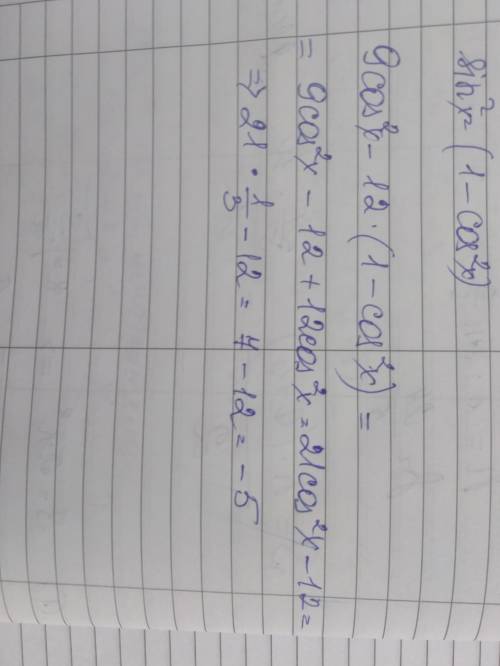 sin²x = (1 - cos²x)
9cos²x - 12 · (1 - cos²x) =
= 9cos²x - 12 + 12cos²x = 21cos²x - 12 =
=> 21 · 1/3 - 12 = 7 - 12 = -5